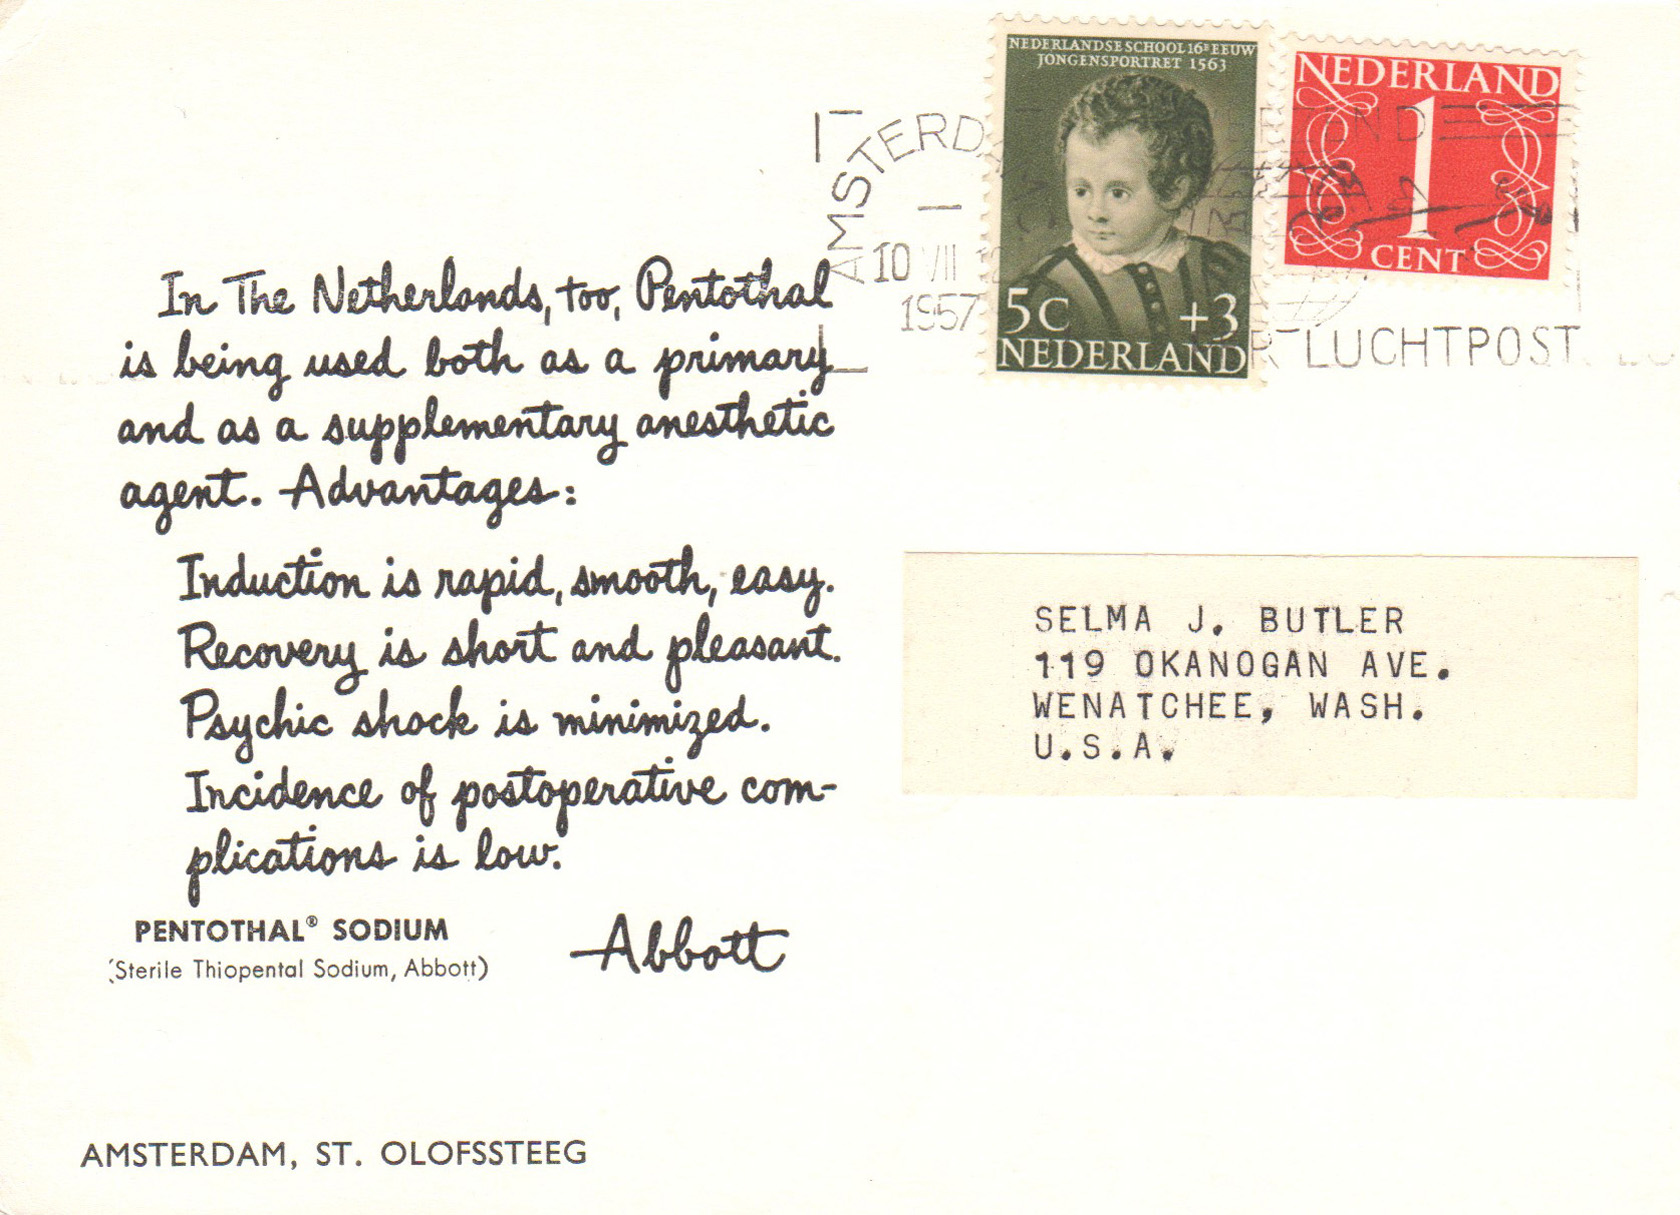 NEDERLANDSE SCHOOL 16E EEUW
JONGENSPORTRET 1563
5C +3
NEDERLAND
NEDERLAND
1
CENT
AMSTERDA
10 VII
1957
LUCHTPOST
In The Netherlands, too, Pentothal
is being used both as a primary
and as a supplementary anesthetic
agent. Advantages:
Induction is rapid, smooth, easy.
Recovery is short and pleasant.
Psychic shock is minimized.
Incidence of postoperative com-
plications is low.
PENTOTHAL® SODIUM
(Sterile Thiopental Sodium, Abbott)
Abbott
AMSTERDAM, ST. OLOFSSTEEG
SELMA J. BUTLER
119 OKANOGAN AVE.
WENATCHEE, WASH.
U.S.A.